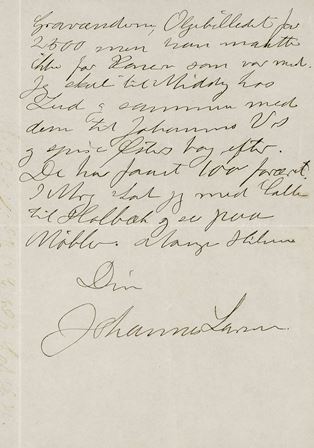 Gravænderne, Oljebilledet for
2500 men han maatte
ikke for Konen som var med.
Jeg skal til Middag hos
Zeud. og sammen med
dem til Johannes V's
og spise Østers bag efter.
De har faaet 100 foræret.
I Mrg. skal jeg med Kalle
til Holbæk og se paa
Møbler. Mange Hilsner
Din
Johannes Larsen.